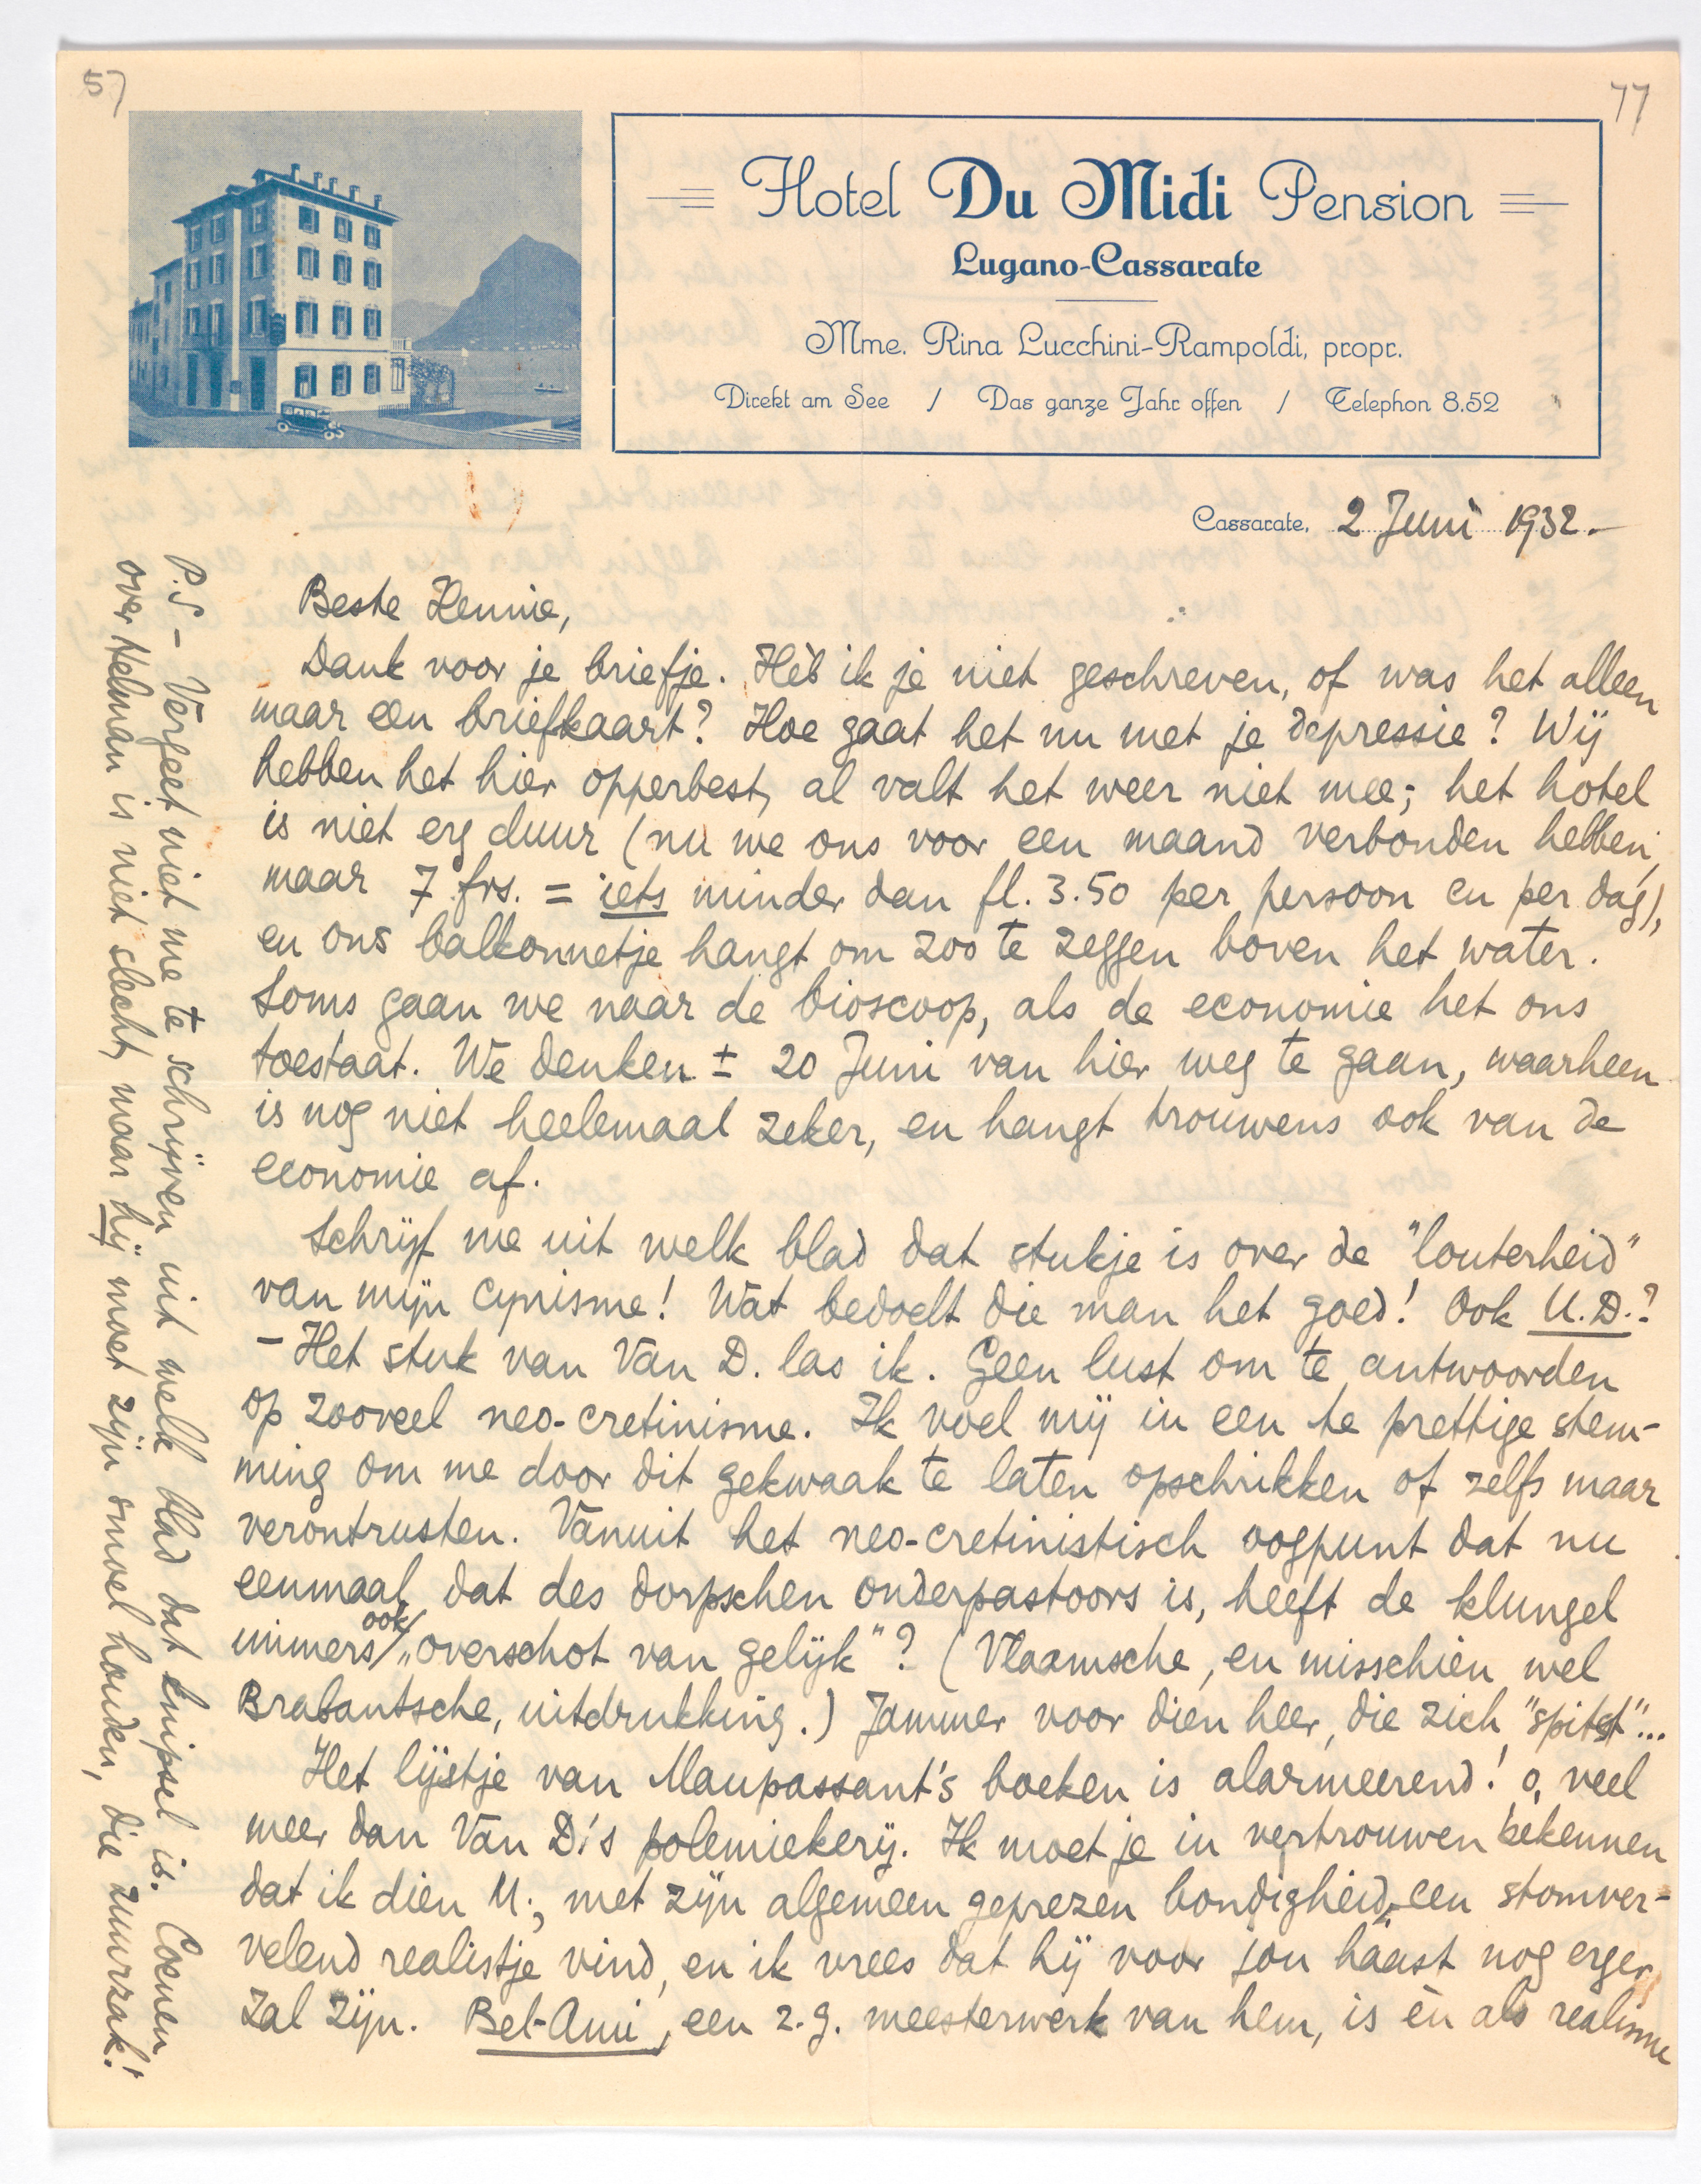 57
77
Hotel Du Midi Pension
Lugano-Cassarate
Mme. Rina Lucchini-Rampoldi, propr.
Direkt am See / Das ganze Jahr offen / Telephon 8.52
Cassarate, 2 Juni 1932.-
Beste Hennie,
Dank voor je briefje. Hèb ik je niet geschreven, of was het alleen
maar een briefkaart? Hoe gaat het nu met je depressie? Wij
hebben het hier opperbest, al valt het weer niet mee; het hotel
is niet erg duur (nu we ons voor een maand verbonden hebben,
maar 7 frs. = iets minder dan fl. 3.50 per persoon en per dag),
en ons balkonnetje hangt om zoo te zeggen boven het water.
Soms gaan we naar de bioscoop, als de economie het ons
toestaat. We denken ± 20 Juni van hier weg te gaan, waarheen
is nog niet heelemaal zeker, en hangt trouwens ook van de
economie af.
Schrijf me uit welk blad dat stukje is over de "louterheid"
van mijn cynisme! Wat bedoelt die man het goed! Ook U.D.?
- Het stuk van Van D. las ik. Geen lust om te antwoorden
op zooveel neo-cretinisme. Ik voel mij in een te prettige stem-
ming om me door dit gekwaak te laten opschrikken of zelfs maar
verontrusten. Vanuit het neo-cretinistisch oogpunt dat nu
eenmaal dat des dorpschen onderpastoors is, heeft de klungel
immers ook „overschot van gelijk"? (Vlaamsche, en misschien wel
Brabantsche, uitdrukking.) Jammer voor dien heer, die zich "spitst"...
Het lijstje van Maupassant's boeken is alarmeerend! o, veel
meer dan Van D.'s polemiekerij. Ik moet je in vertrouwen bekennen
dat ik dien M., met zijn algemeen geprezen bondigheid, een stomver-
velend realistje vind, en ik vrees dat hij voor jou haast nog erger
zal zijn. Bel-Ami, een z.g. meesterwerk van hem, is èn als realisme
P.S - Vergeet niet me te schrijven uit welk blad dat knipsel is. Coenen
over Helman is niet slecht, maar hij moet zijn smoel houden, die zuurzak!